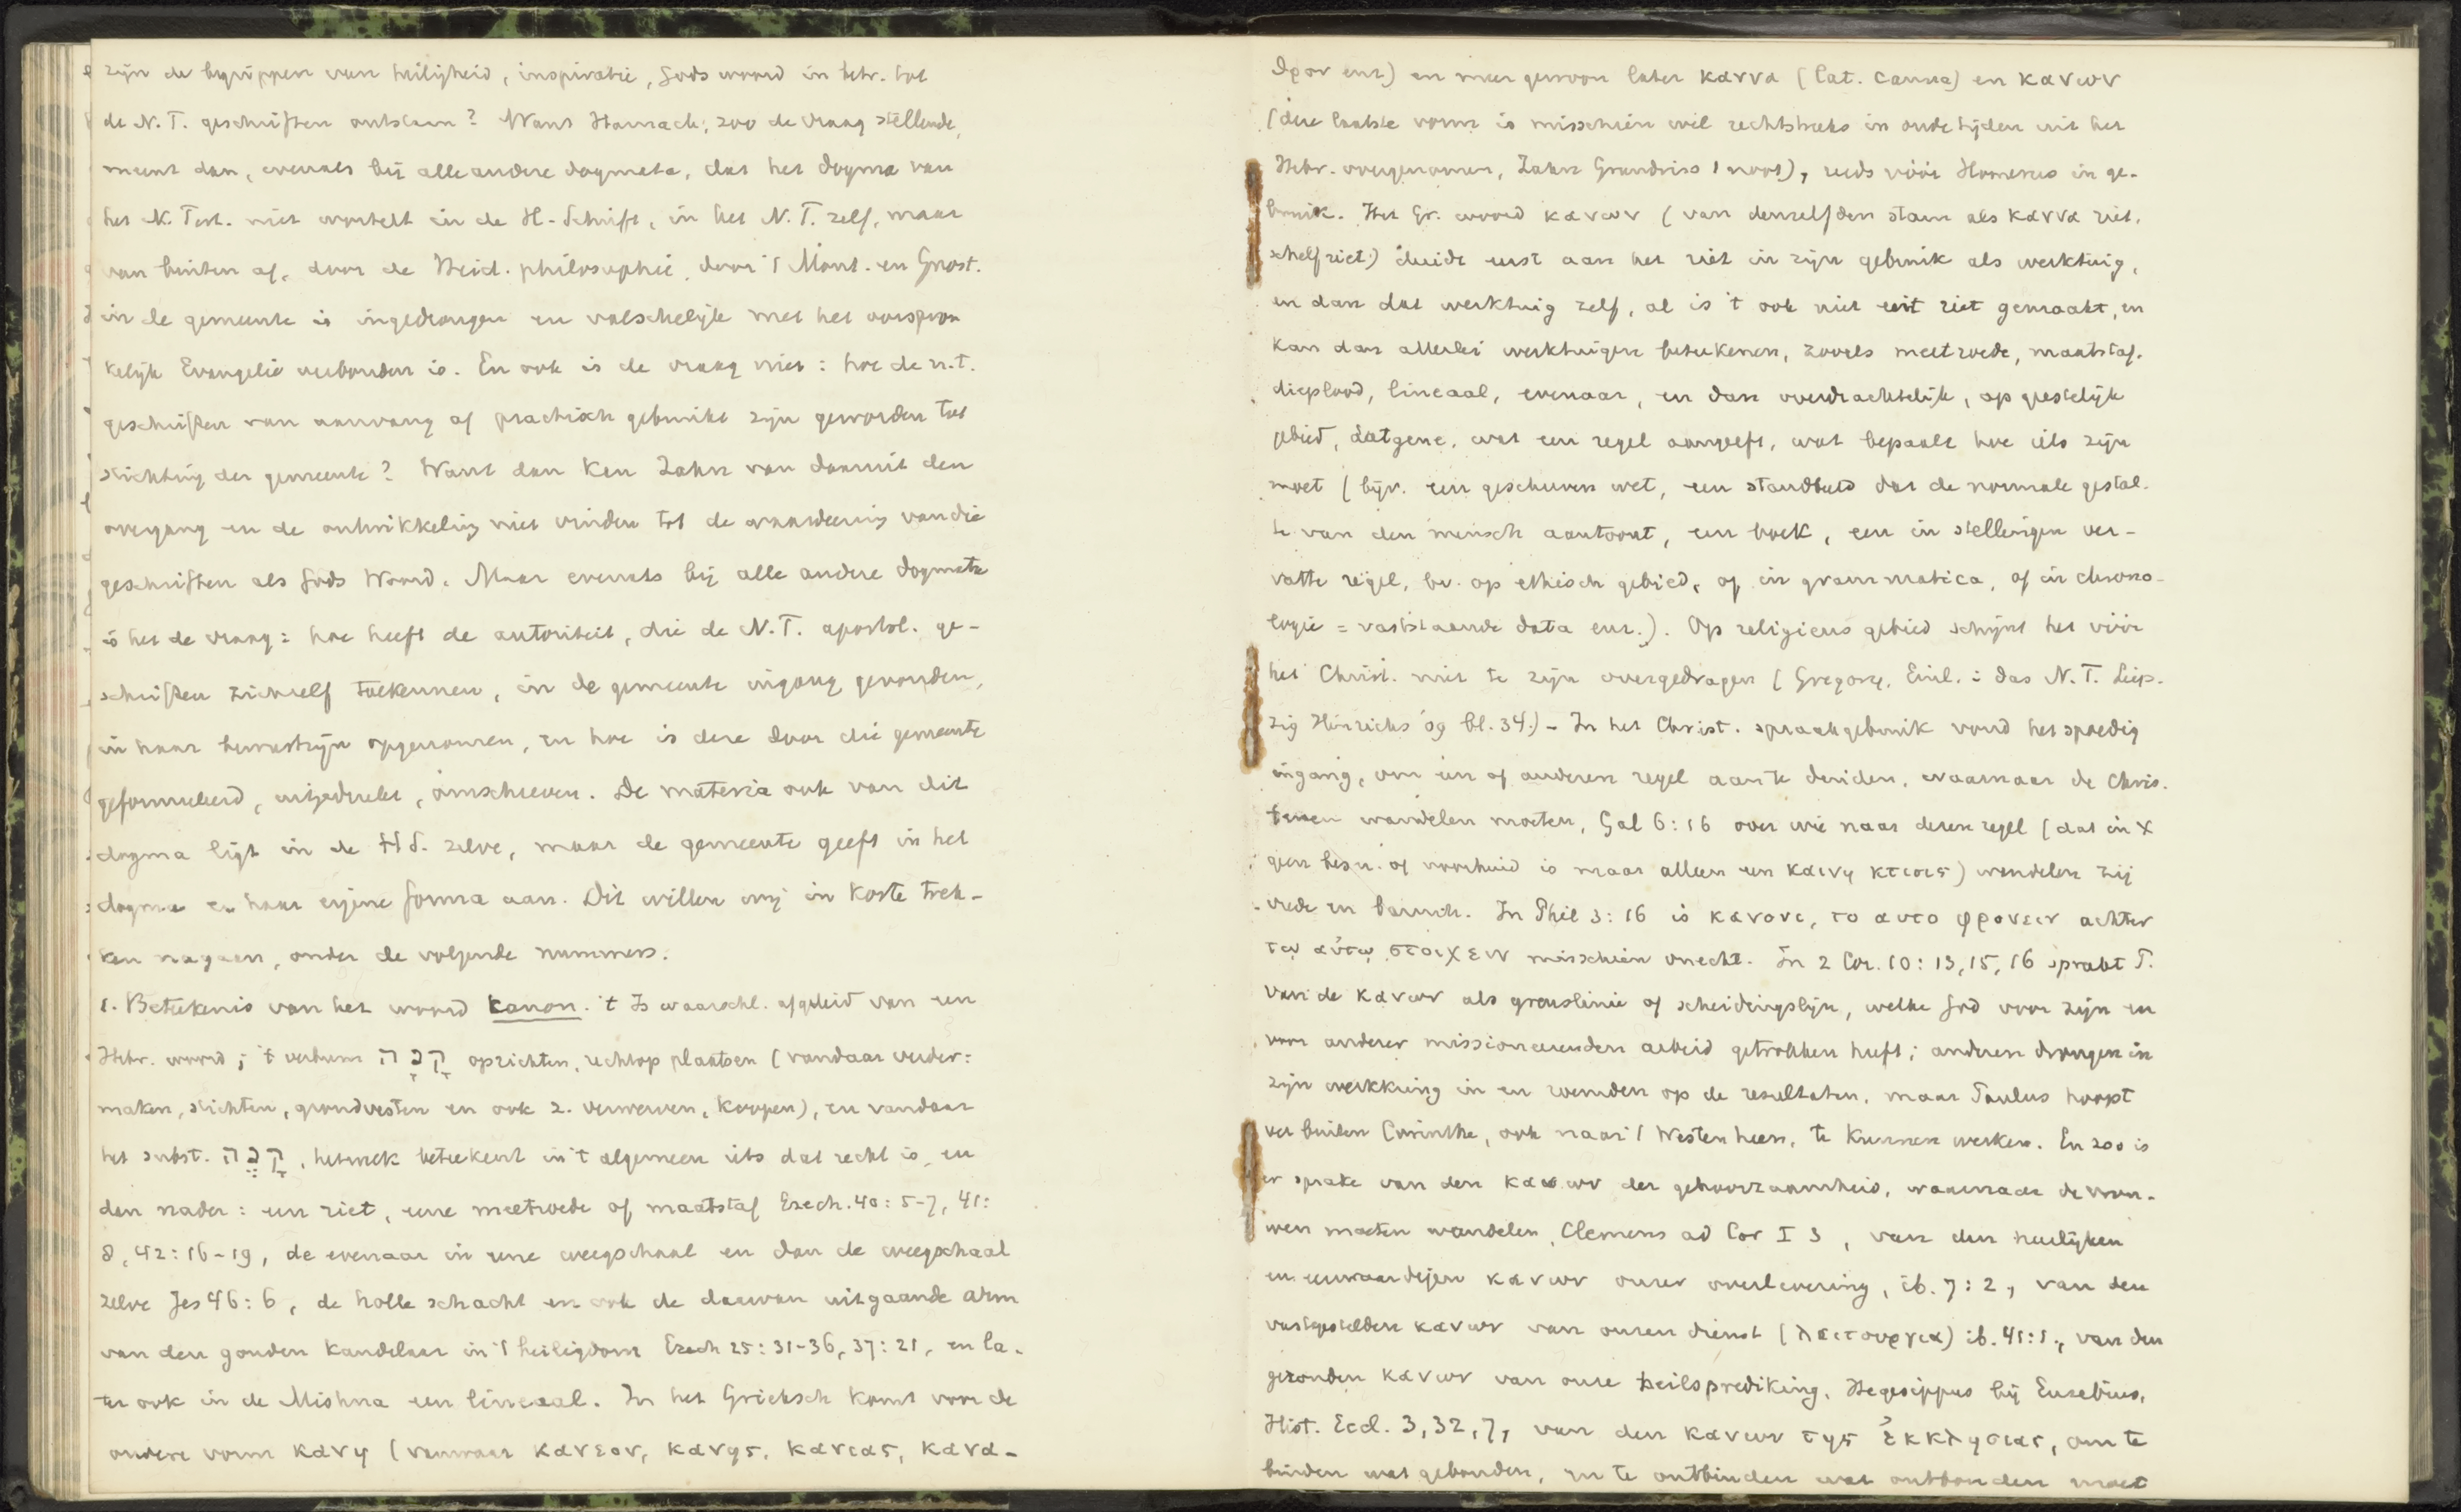 zijn de begrippen van heiligheid, inspiratie, Gods woord in betr. tot
de N. T. geschriften ontstaan? Want Harnack, zoo de vraag stellende,
meent dan, evenals bij alle andere dogmata, dat het dogma van
het N. Test. niet wortelt in de H. Schrift, in het N. T. zelf, maar
van buiten af, door de Heid. philosophie, door 't Mont. en Gnost.
in de gemeente is ingedrongen en valschelijk met het oorspron
kelijk Evangelie verbonden is. En ook is de vraag niet: hoe de n.t.
geschriften van aanvang af practisch gebruikt zijn geworden tot
stichting der gemeente? Want dan kon Zahn van daaruit den
overgang en de ontwikkeling niet vinden tot de waardeering van die
geschriften als Gods Woord. Maar evenals bij alle andere dogmata
is het de vraag: hoe heeft de autoriteit, die de N. T. apostol. ge-
schriften zichzelf toekennen, in de gemeente ingang gevonden,
in haar bewustzijn opgenomen, en hoe is deze door die gemeente
geformuleerd, uitgedrukt, omschreven. De materia ook van dit
dogma ligt in de H S. zelve, maar de gemeente geeft in het
dogma er haar eigene forma aan. Dit willen wij in korte trek-
ken nagaan, onder de volgende nummers.
1. Beteekenis van het woord kanon. 't Is waarschl. afgeleid van een
Hebr. woord; 't verbum קָנָה oprichten, rechtop plaatsen (vandaar verder:
maken, stichten, grondvesten en ook 2. verwerven, koopen), en vandaar
het subst. קָנֶה, hetwelk beteekent in 't algemeen iets dat recht is, en
dan nader: een riet, eene meetroede of maatstaf Ezech. 40: 5-7, 41:
8, 42: 16-19, de evenaar in eene weegschaal en dan de weegschaal
zelve Jes 46: 6, de holle schacht en ook de daarvan uitgaande arm
van den gouden kandelaar in 't heiligdom 25: 31-36, 37: 21, en la-
ter ook in de Mishna een lineaal. In het Grieksch komt voor de
oudere vorm κανη (vanwaar κανεον, κανης, κανιας, κανα-
δρον enz) en meer gewoon later καννα (lat. canna) en κανων
(deze laatste vorm is misschien wel rechtstreeks in oude tijden uit het
Hebr. overgenomen, Zahn Grundriss 1 noot), reeds vóór Homerus in ge-
bruik. Het Gr. woord κανων (van denzelfden stam als καννα riet,
schelfriet) duidt eerst aan het riet in zijn gebruik als werktuig,
en dan dat werktuig zelf, al is 't ook niet uit riet gemaakt, en
kan dan allerlei werktuigen beteekenen, zooals meetroede, maatstaf.
dieplood, lineaal, evenaar, en dan overdrachtelijk, op geestelijk
gebied, datgene, wat een regel aangeeft, wat bepaalt hoe iets zijn
moet (bijv. een geschreven wet, een standbeeld dat de normale gestal-
te van den mensch aantoont, een boek, een in stellingen ver-
vatte regel, bv. op ethisch gebied, of in grammatica, of in chrono-
logie = vaststaande data enz.). Op religieus gebied schijnt het vóór
het Christ. niet te zijn overgedragen (Gregory, Einl. i das N. T. Leip-
zig Hinrichs 09 bl. 34.) - In het Christ. spraakgebruik vond het spoedig
ingang, om een of anderen regel aan te duiden, waarnaar de Chris-
tenen wandelen moeten, Gal 6: 16 over wie naar dezen regel (dat in X
geen besn. of voorhuid is maar alleen een καινη κτισις) wandelen zij
vrede en barmh. In Phil 3: 16 is κανονι, το αυτο φρονειν achter
τω αὐτω στοιχειν misschien onecht. In 2 Cor. 10: 13, 15, 16 spreekt P.
van de κανων als grenslinie of scheidingslijn, welke God voor zijn en
voor anderer missioneerenden arbeid getrokken heeft; anderen drongen in
zijn werkkring in en roemden op de resultaten, maar Paulus hoopt
ver buiten Corinthe, ook naar 't Westen heen, te kunnen werken. En zoo is
er sprake van den κανων der gehoorzaamheid, waarnaar de vrou-
wen moeten wandelen, Clemens ad Cor I 3, van den heerlijken
en eerwaardigen κανων onzer overlevering, ib. 7: 2, van den
vastgestelden κανων van onzen dienst (λειτουργια) ib. 41: 1, van den
gezonden κανων van onze heilsprediking, Hegesippus bij Eusebius,
Hist. Eccl. 3, 32, 7, van den κανων της ἐκκλησιας, om te
binden wat gebonden, en te ontbinden wat ontbonden moet